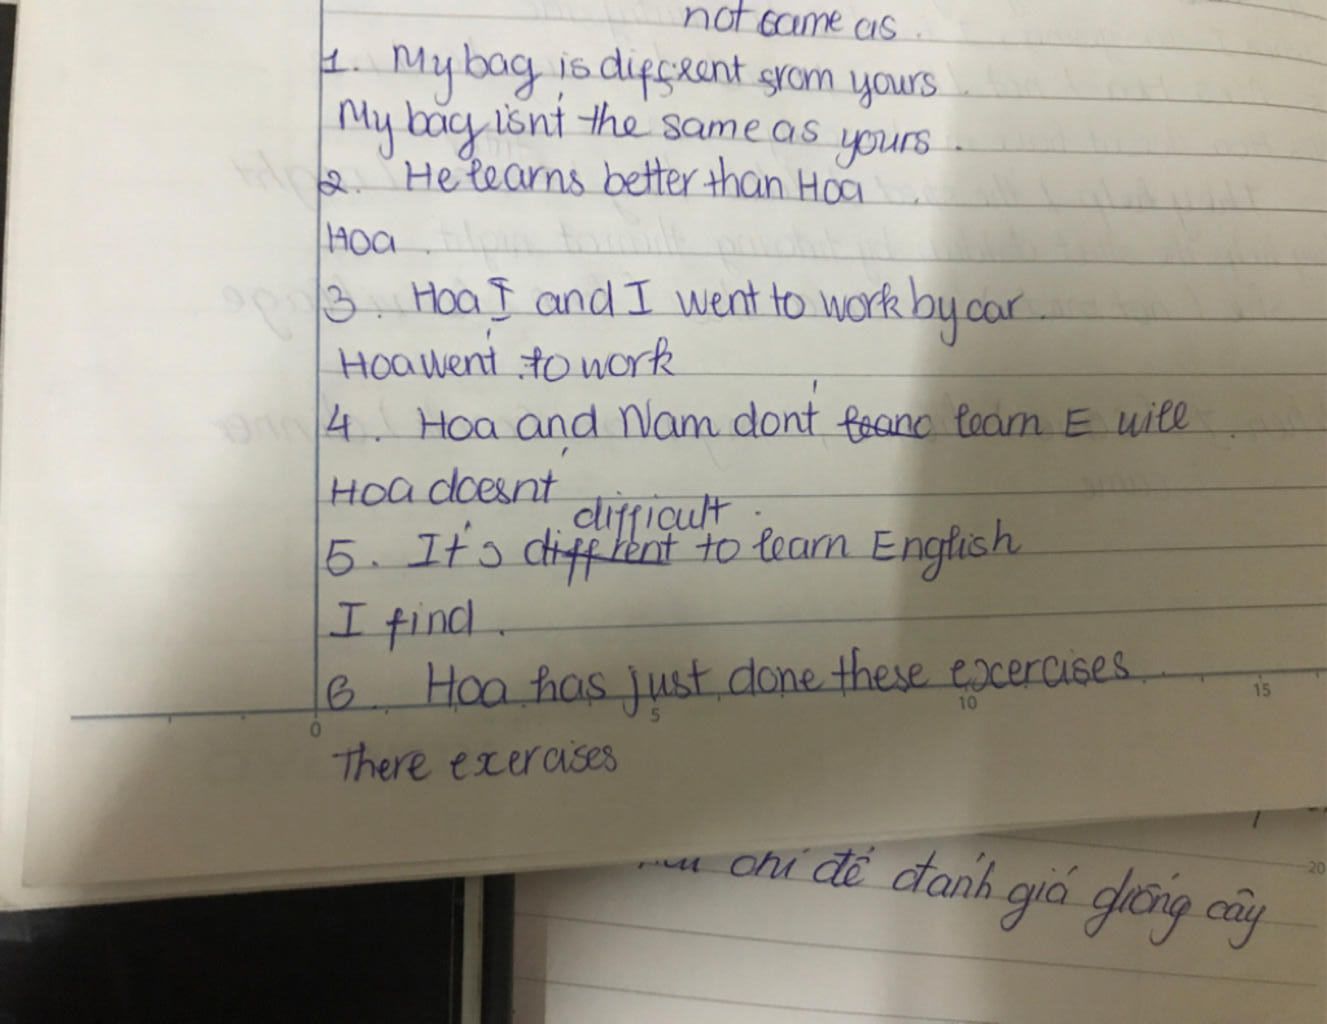 not same as.
1. My bag is different from yours.
My bag isn't the same as yours.
2. He learns better than Hoa
Hoa.
3. Hoa I and I went to work by car.
Hoa went to work
4. Hoa and Nam don't learn E well.
Hoa doesn't
difficult.
5. It's diffrent to learn English
I find.
6. Hoa has just done these excercises.
There exercises
0 5 10 15
chỉ để đánh giá giống cây
20